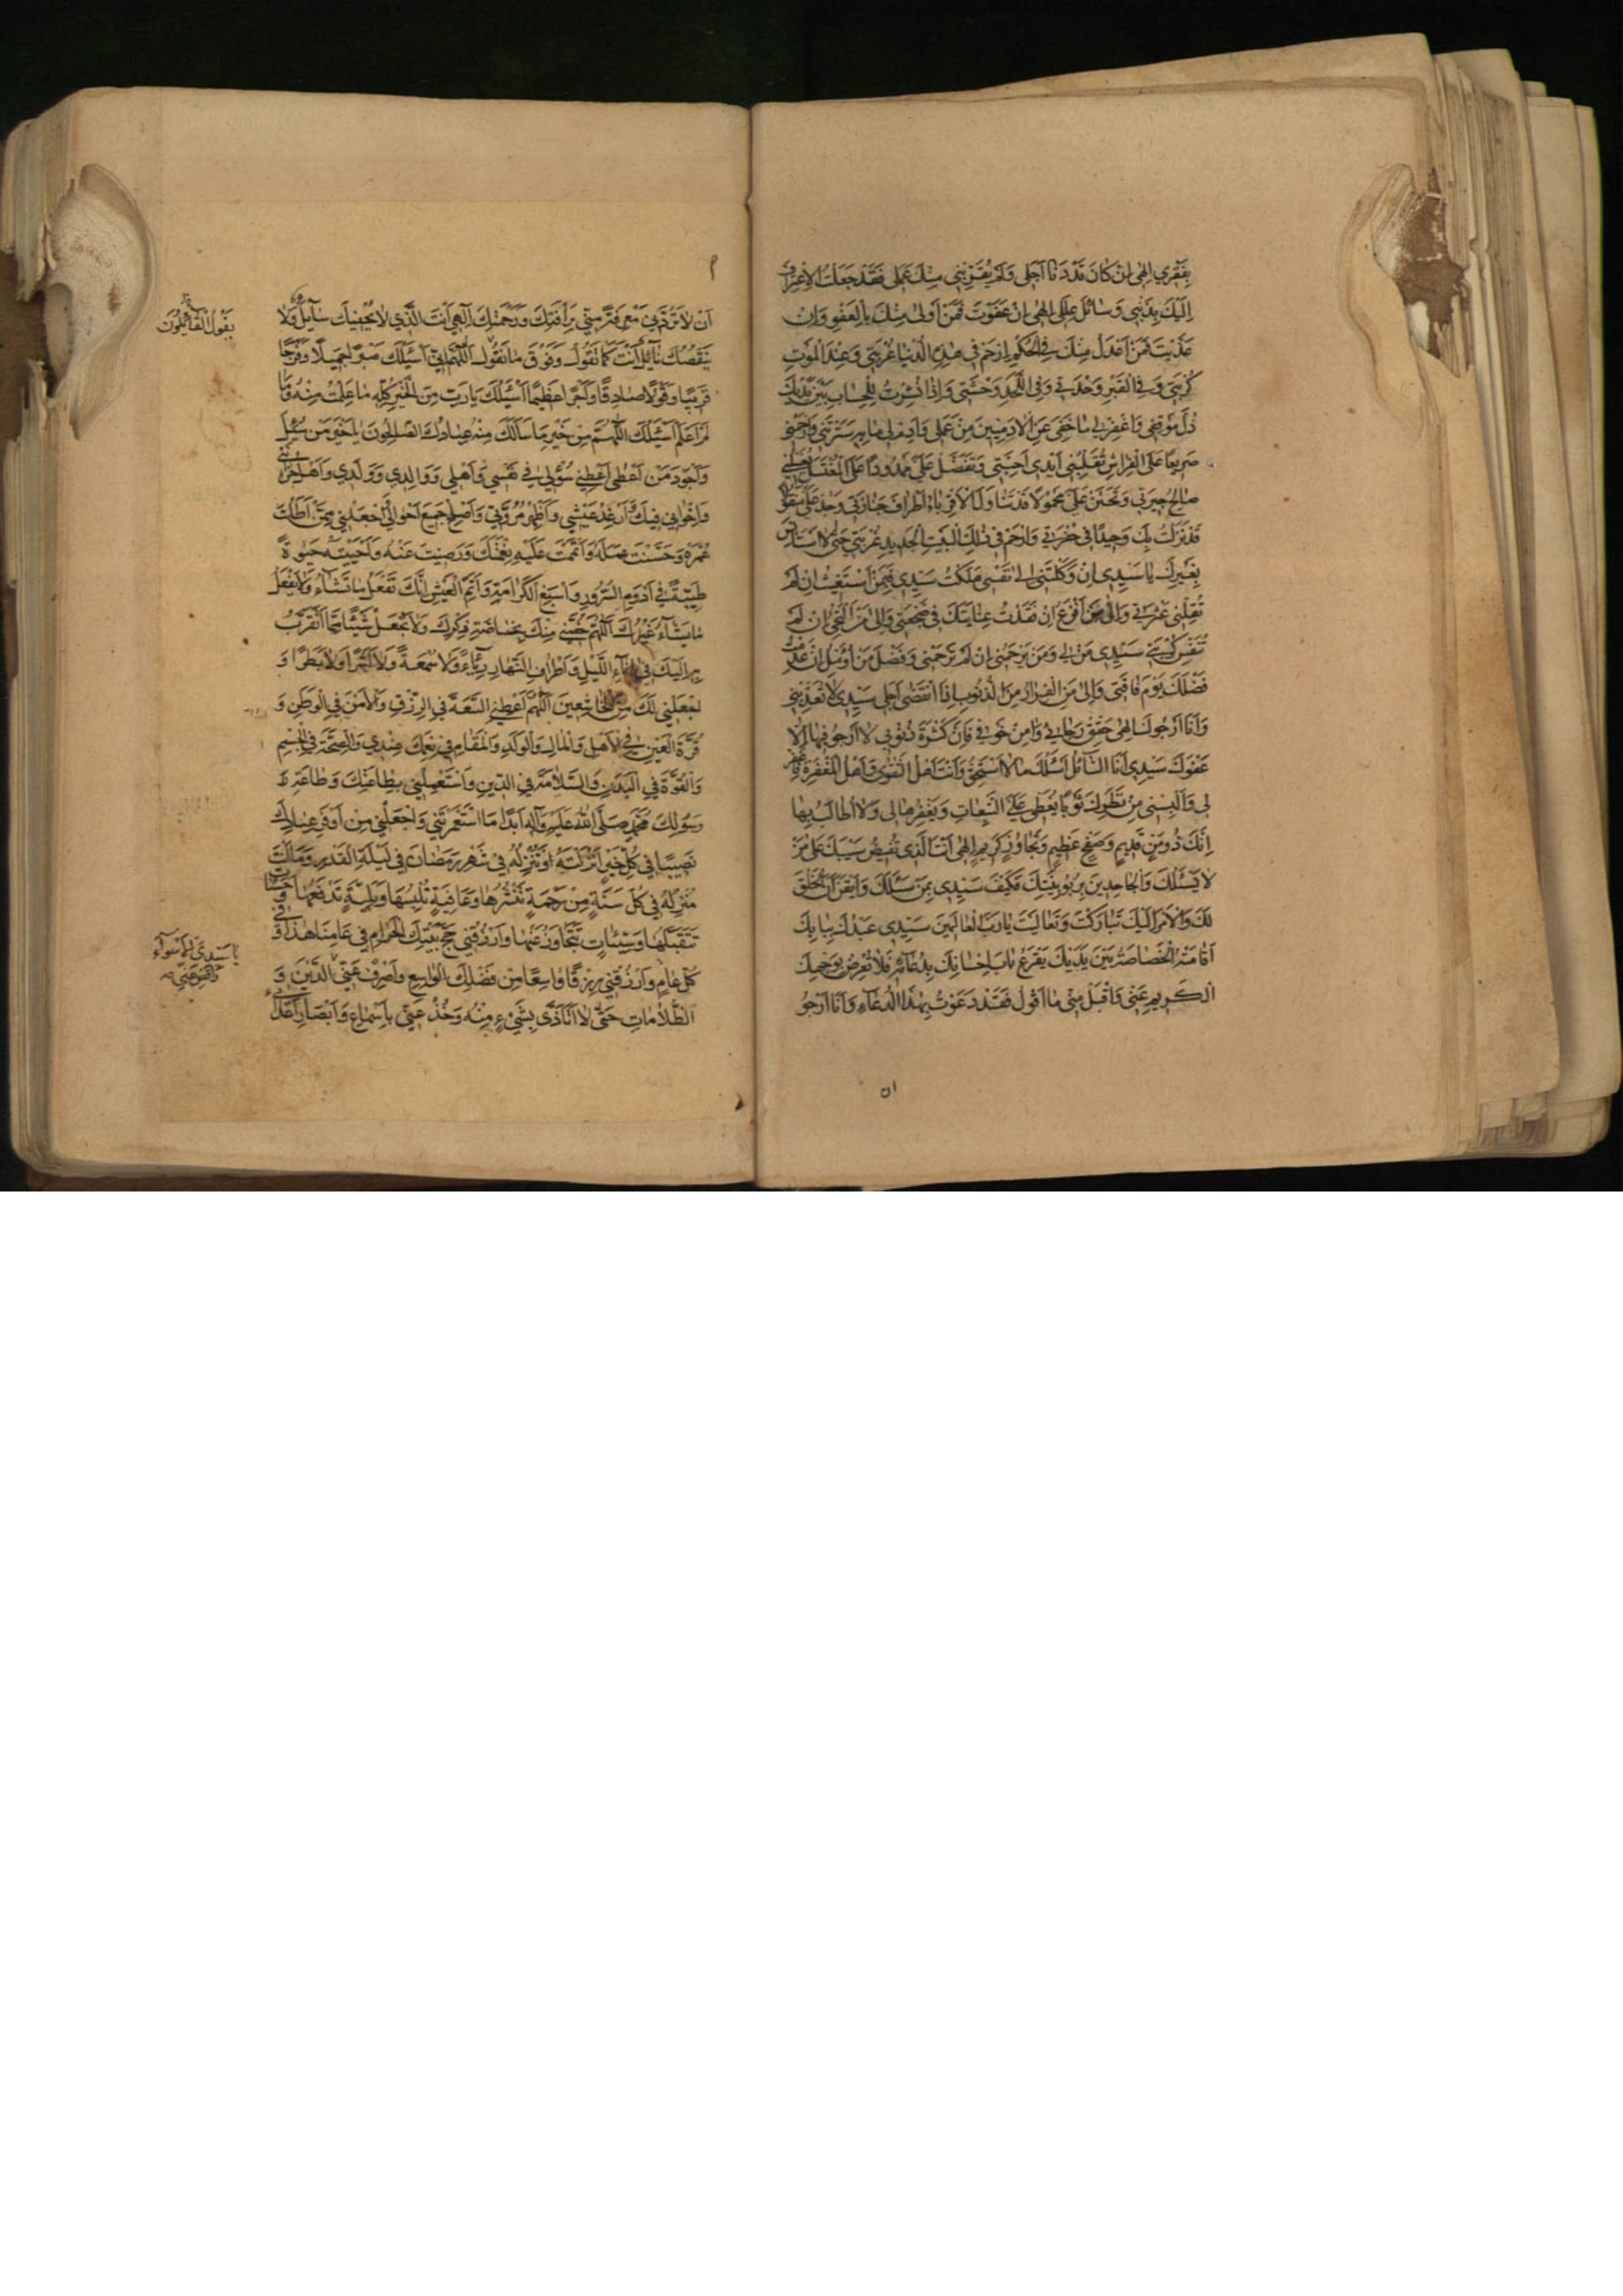 بِفَقْري اِلهٰي اِنْ كانَ قَدْ دَنٰا اَجَلي وَلَمْ يُقَرِّبْني مِنْكَ عَمَلي فَقَدْ جَعَلْتُ الْاِعْتِرٰافَ
اِلَيْكَ بِذَنْبي وَسٰائِلَ عِلَلي اِلهٰي اِنْ عَفَوْتَ فَمَنْ اَوْلىٰ مِنْكَ بِالْعَفْوِ وَاِنْ
عَذَّبْتَ فَمَنْ اَعْدَلُ مِنْكَ فِي الْحُكْمِ اِرْحَمْ في هٰذِهِ الدُّنْيٰا غُرْبَتي وَعِنْدَ الْمَوْتِ
كُرْبَتي وَفِي الْقَبْرِ وَحْدَتي وَفِي اللَّحْدِ وَحْشَتي وَاِذٰا نُشِرْتُ لِلْحِسٰابِ بَيْنَ يَدَيْكَ
ذُلَّ مَوْقِفي وَاغْفِرْ لي مٰا خَفِيَ عَنِ الْاٰدَمِيّينَ مِنْ عَمَلي وَاَدِمْ لي مٰا بِهِ سَتَرْتَني وَارْحَمْني
صَريعًا عَلَى الْفِرٰاشِ تُقَلِّبُني اَيْدي اَحِبَّتي وَتَفَضَّلْ عَلَيَّ مَمْدُودًا عَلَى الْمُغْتَسَلِ يُغَسِّلُني
صٰالِحُ جيرَتي وَتَحَنَّنْ عَلَيَّ مَحْمُولًا قَدْ تَنٰاوَلَ الْاَقْرِبٰاءُ اَطْرٰافَ جَنٰازَتي وَجُدْ عَلَيَّ مَنْقُولًا
قَدْ نَزَلْتُ بِكَ وَحيدًا في حُفْرَتي وَارْحَمْ في ذٰلِكَ الْبَيْتِ الْجَديدِ غُرْبَتي حَتّٰى لٰا اَسْتَأْنِسَ
بِغَيْرِكَ يٰا سَيِّدي اِنْ وَكَلْتَني اِلىٰ نَفْسي هَلَكْتُ سَيِّدي فَبِمَنْ اَسْتَغيثُ اِنْ لَمْ
تُقِلْني عَثْرَتي وَاِلىٰ مَنْ اَفْزَعُ اِنْ فَقَدْتُ عِنٰايَتَكَ في ضَجْعَتي وَاِلىٰ مَنْ اَلْتَجِئُ اِنْ لَمْ
تُنَفِّسْ كُرْبَتي سَيِّدي مَنْ لي وَمَنْ يَرْحَمُني اِنْ لَمْ تَرْحَمْني وَفَضْلَ مَنْ اُؤَمِّلُ اِنْ عَدِمْتُ
فَضْلَكَ يَوْمَ فٰاقَتي وَاِلىٰ مَنِ الْفِرٰارُ مِنَ الذُّنُوبِ اِذَا انْقَضىٰ اَجَلي سَيِّدي لٰا تُعَذِّبْني
وَاَنَا اَرْجُوكَ اِلهٰي حَقِّقْ رَجٰائي وَاٰمِنْ خَوْفي فَاِنَّ كَثْرَةَ ذُنُوبي لٰا اَرْجُو فيهٰا اِلّٰا
عَفْوَكَ سَيِّدي اَنَا السّٰائِلُ اَسْئَلُكَ مٰا لٰا اَسْتَحِقُّ وَاَنْتَ اَهْلُ التَّقْوىٰ وَاَهْلُ الْمَغْفِرَةِ فَاغْفِرْ
لي وَاَلْبِسْني مِنْ نَظَرِكَ ثَوْبًا يُغَطّي عَلَيَّ التَّبِعٰاتِ وَتَغْفِرُهٰا لي وَلٰا اُطٰالَبُ بِهٰا
اِنَّكَ ذُو مَنٍّ قَديمٍ وَصَفْحٍ عَظيمٍ وَتَجٰاوُزٍ كَريمٍ اِلهٰي اَنْتَ الَّذي تُفيضُ سَيْبَكَ عَلىٰ مَنْ
لٰا يَسْئَلُكَ وَالْجٰاحِدينَ بِرُبُوبِيَّتِكَ فَكَيْفَ سَيِّدي بِمَنْ سَئَلَكَ وَاَيْقَنَ اَنَّ الْخَلْقَ
لَكَ وَالْاَمْرَ اِلَيْكَ تَبٰارَكْتَ وَتَعٰالَيْتَ يٰا رَبَّ الْعٰالَمينَ سَيِّدي عَبْدُكَ بِبٰابِكَ
اَقٰامَتْهُ الْخَصٰاصَةُ بَيْنَ يَدَيْكَ يَقْرَعُ بٰابَ اِحْسٰانِكَ بِدُعٰائِهِ فَلٰا تُعْرِضْ بِوَجْهِكَ
الْكَريمِ عَنّي وَاقْبَلْ مِنّي مٰا اَقُولُ فَقَدْ دَعَوْتُ بِهٰذَا الدُّعٰاءِ وَاَنَا اَرْجُو
ان
اَنْ لٰا تَرُدَّني مَعْرِفَةً مِنّي بِرَأْفَتِكَ وَرَحْمَتِكَ اِلهٰي اَنْتَ الَّذي لٰا يُحْفيكَ سٰائِلٌ وَلٰا
يَنْقُصُكَ نٰائِلٌ اَنْتَ كَمٰا تَقُولُ وَفَوْقَ مٰا نَقُولُ اَللّٰهُمَّ اِنّي اَسْئَلُكَ صَبْرًا جَميلًا وَفَرَجًا
يَقُولُ الْقٰائِلُونَ
قَريبًا وَقَوْلًا صٰادِقًا وَاَجْرًا عَظيمًا اَسْئَلُكَ يٰا رَبِّ مِنَ الْخَيْرِ كُلِّهِ مٰا عَلِمْتُ مِنْهُ وَمٰا
لَمْ اَعْلَمْ اَسْئَلُكَ اللّٰهُمَّ مِنْ خَيْرِ مٰا سَاَلَكَ مِنْهُ عِبٰادُكَ الصّٰالِحُونَ يٰا خَيْرَ مَنْ سُئِلَ
وَاَجْوَدَ مَنْ اَعْطىٰ اَعْطِني سُؤْلي في نَفْسي وَاَهْلي وَوٰالِدي وَوَلَدي وَاَهْلِ حُزٰانَتي
وَاِخْوٰاني فيكَ وَاَرْغِدْ عَيْشي وَاَظْهِرْ مُرُوَّتي وَاَصْلِحْ جَميعَ اَحْوٰالي وَاجْعَلْني مِمَّنْ اَطَلْتَ
عُمْرَهُ وَحَسَّنْتَ عَمَلَهُ وَاَتْمَمْتَ عَلَيْهِ نِعْمَتَكَ وَرَضيتَ عَنْهُ وَاَحْيَيْتَهُ حَيٰوةً
طَيِّبَةً في اَدْوَمِ السُّرُورِ وَاَسْبَغِ الْكَرٰامَةِ وَاَتَمِّ الْعَيْشِ اِنَّكَ تَفْعَلُ مٰا تَشٰاءُ وَلٰا يَفْعَلُ
مٰا يَشٰاءُ غَيْرُكَ اَللّٰهُمَّ خُصَّني مِنْكَ بِخٰاصَّةِ ذِكْرِكَ وَلٰا تَجْعَلْ شَيْئًا مِمّٰا اَتَقَرَّبُ
بِهِ اِلَيْكَ في اٰنٰاءِ اللَّيْلِ وَاَطْرٰافِ النَّهٰارِ رِئٰاءً وَلٰا سُمْعَةً وَلٰا اَشَرًا وَلٰا بَطَرًا وَ
اجْعَلْني لَكَ مِنَ الْخٰاشِعينَ اَللّٰهُمَّ اَعْطِني السَّعَةَ فِي الرِّزْقِ وَالْاَمْنَ فِي الْوَطَنِ وَ
قُرَّةَ الْعَيْنِ فِي الْاَهْلِ وَالْمٰالِ وَالْوَلَدِ وَالْمُقٰامَ في نِعَمِكَ عِنْدي وَالصِّحَّةَ فِي الْجِسْمِ
وَالْقُوَّةَ فِي الْبَدَنِ وَالسَّلٰامَةَ فِي الدّينِ وَاسْتَعْمِلْني بِطٰاعَتِكَ وَطٰاعَةِ
رَسُولِكَ مُحَمَّدٍ صَلَّى اللّٰهُ عَلَيْهِ وَاٰلِهِ اَبَدًا مَا اسْتَعْمَرْتَني وَاجْعَلْني مِنْ اَوْفَرِ عِبٰادِكَ
نَصيبًا في كُلِّ خَيْرٍ اَنْزَلْتَهُ اَوْ تُنْزِلُهُ في شَهْرِ رَمَضٰانَ في لَيْلَةِ الْقَدْرِ وَمٰا اَنْتَ
مُنْزِلُهُ في كُلِّ سَنَةٍ مِنْ رَحْمَةٍ تَنْشُرُهٰا وَعٰافِيَةٍ تُلْبِسُهٰا وَبَلِيَّةٍ تَدْفَعُهٰا وَحَسَنٰاتٍ
تَتَقَبَّلُهٰا وَسَيِّئٰاتٍ تَتَجٰاوَزُ عَنْهٰا وَارْزُقْني حَجَّ بَيْتِكَ الْحَرٰامِ في عٰامِنٰا هٰذٰا وَفي
كُلِّ عٰامٍ وَارْزُقْني رِزْقًا وٰاسِعًا مِنْ فَضْلِكَ الْوٰاسِعِ وَاصْرِفْ عَنّي الدَّيْنَ وَ
يٰا سَيِّدي الْاَسْوٰاءَ
الظُّلٰامٰاتِ حَتّٰى لٰا اَتَاَذّىٰ بِشَيْءٍ مِنْهُ وَخُذْ عَنّي بِاَسْمٰاعِ وَاَبْصٰارِ اَعْدٰائي